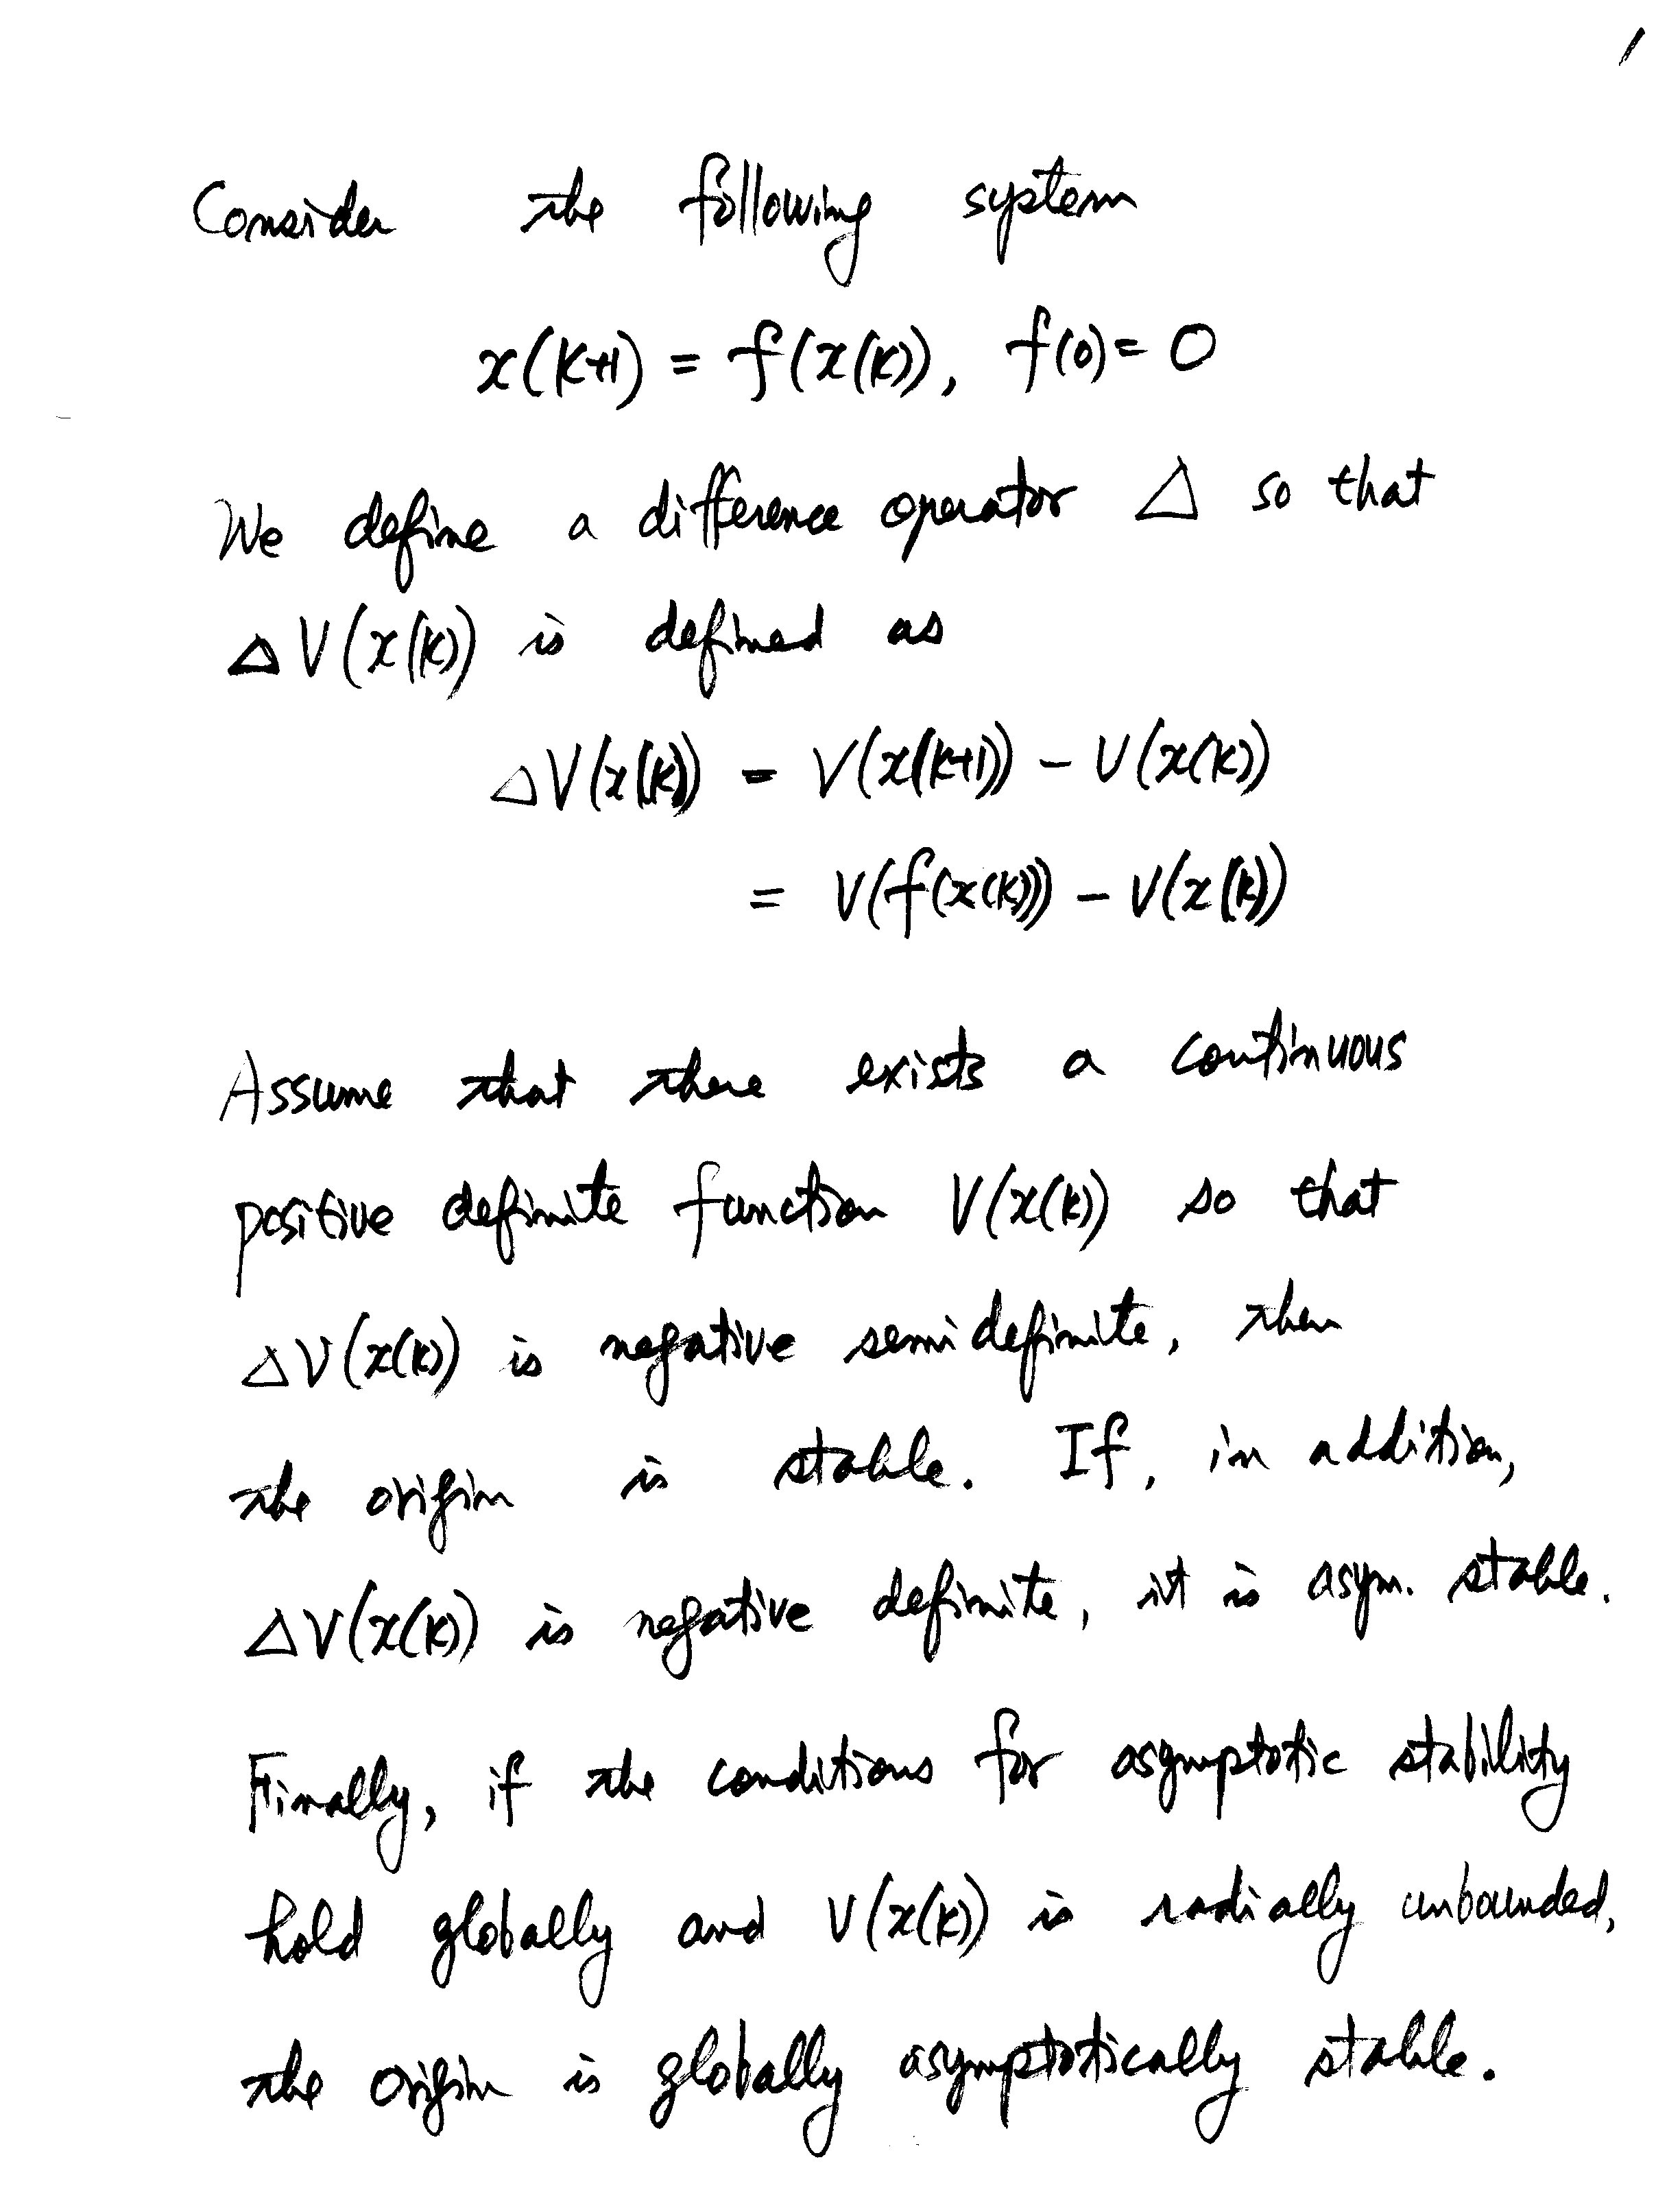 1
Consider the following system
x(k+1) = f(x(k)), f(0) = 0
We define a difference operator △ so that
△V(x(k)) is defined as
△V(x(k)) = V(x(k+1)) - V(x(k))
= V(f(x(k))) - V(x(k))
Assume that there exists a continuous
positive definite function V(x(k)) so that
△V(x(k)) is negative semidefinite, then
the origin is stable. If, in addition,
△V(x(k)) is negative definite, it is asym. stable.
Finally, if the conditions for asymptotic stability
hold globally and V(x(k)) is radially unbounded,
the origin is globally asymptotically stable.